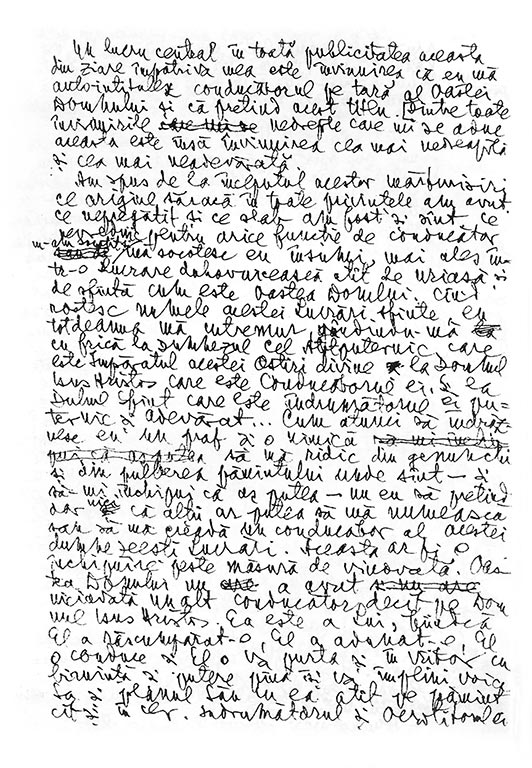 Un lucru central în toată publicitatea aceasta
din ziare împotriva mea este învinuirea că eu mă
autointitulez conducătorul pe țară al Oastei
Domnului și că pretind acest titlu. Dintre toate
învinuirile care mi se nedrepte care mi se aduc
aceasta este însă învinuirea cea mai nedreaptă
și cea mai neadevărată.
Am spus de la începutul acestor mărturisiri
ce origine săracă în toate privințele am avut
ce nepregătit și ce slab am fost și sînt ce
pentru orice funcție de conducător
m-am simțit mă socotesc eu însumi, mai ales în
tr-o lucrare duhovnicească atît de uriașă și
de sfîntă cum este Oastea Domnului. Cînd
rostesc numele acestei Lucrări sfinte eu
totdeauna mă cutremur, gîndindu-mă
cu frică la Dumnezeul cel Atotputernic care
este Împăratul acestei Ostiri divine la Domnul
Isus Hristos care este Conducătorul ei. Și la
Duhul Sfînt care este îndrumătorul ei pu-
ternic și adevărat... Cum atunci să îndrăz-
nesc eu un praf și o nimica
să mă ridic din genunchi
și din pulberea pămîntului unde sînt – și
să-mi închipui că aș putea – nu eu să pretind
dar nici că alții ar putea să mă numească
sau să mă creadă un conducător al acestei
dumnezeești Lucrări. Aceasta ar fi o
închipuire peste măsură de vinovată. Oas-
tea Domnului nu are a avut
niciodată un alt conducător, decît pe Dom
nul Isus Hristos. Ea este a Lui, fiindcă
El a răscumpărat-o, El a adunat-o, El
o conduce și El o va purta și în viitor cu
biruință și putere pînă își va împlini voia
Sa și planul Său cu ea atît pe pămînt
cît și în cer. Îndrumătorul și